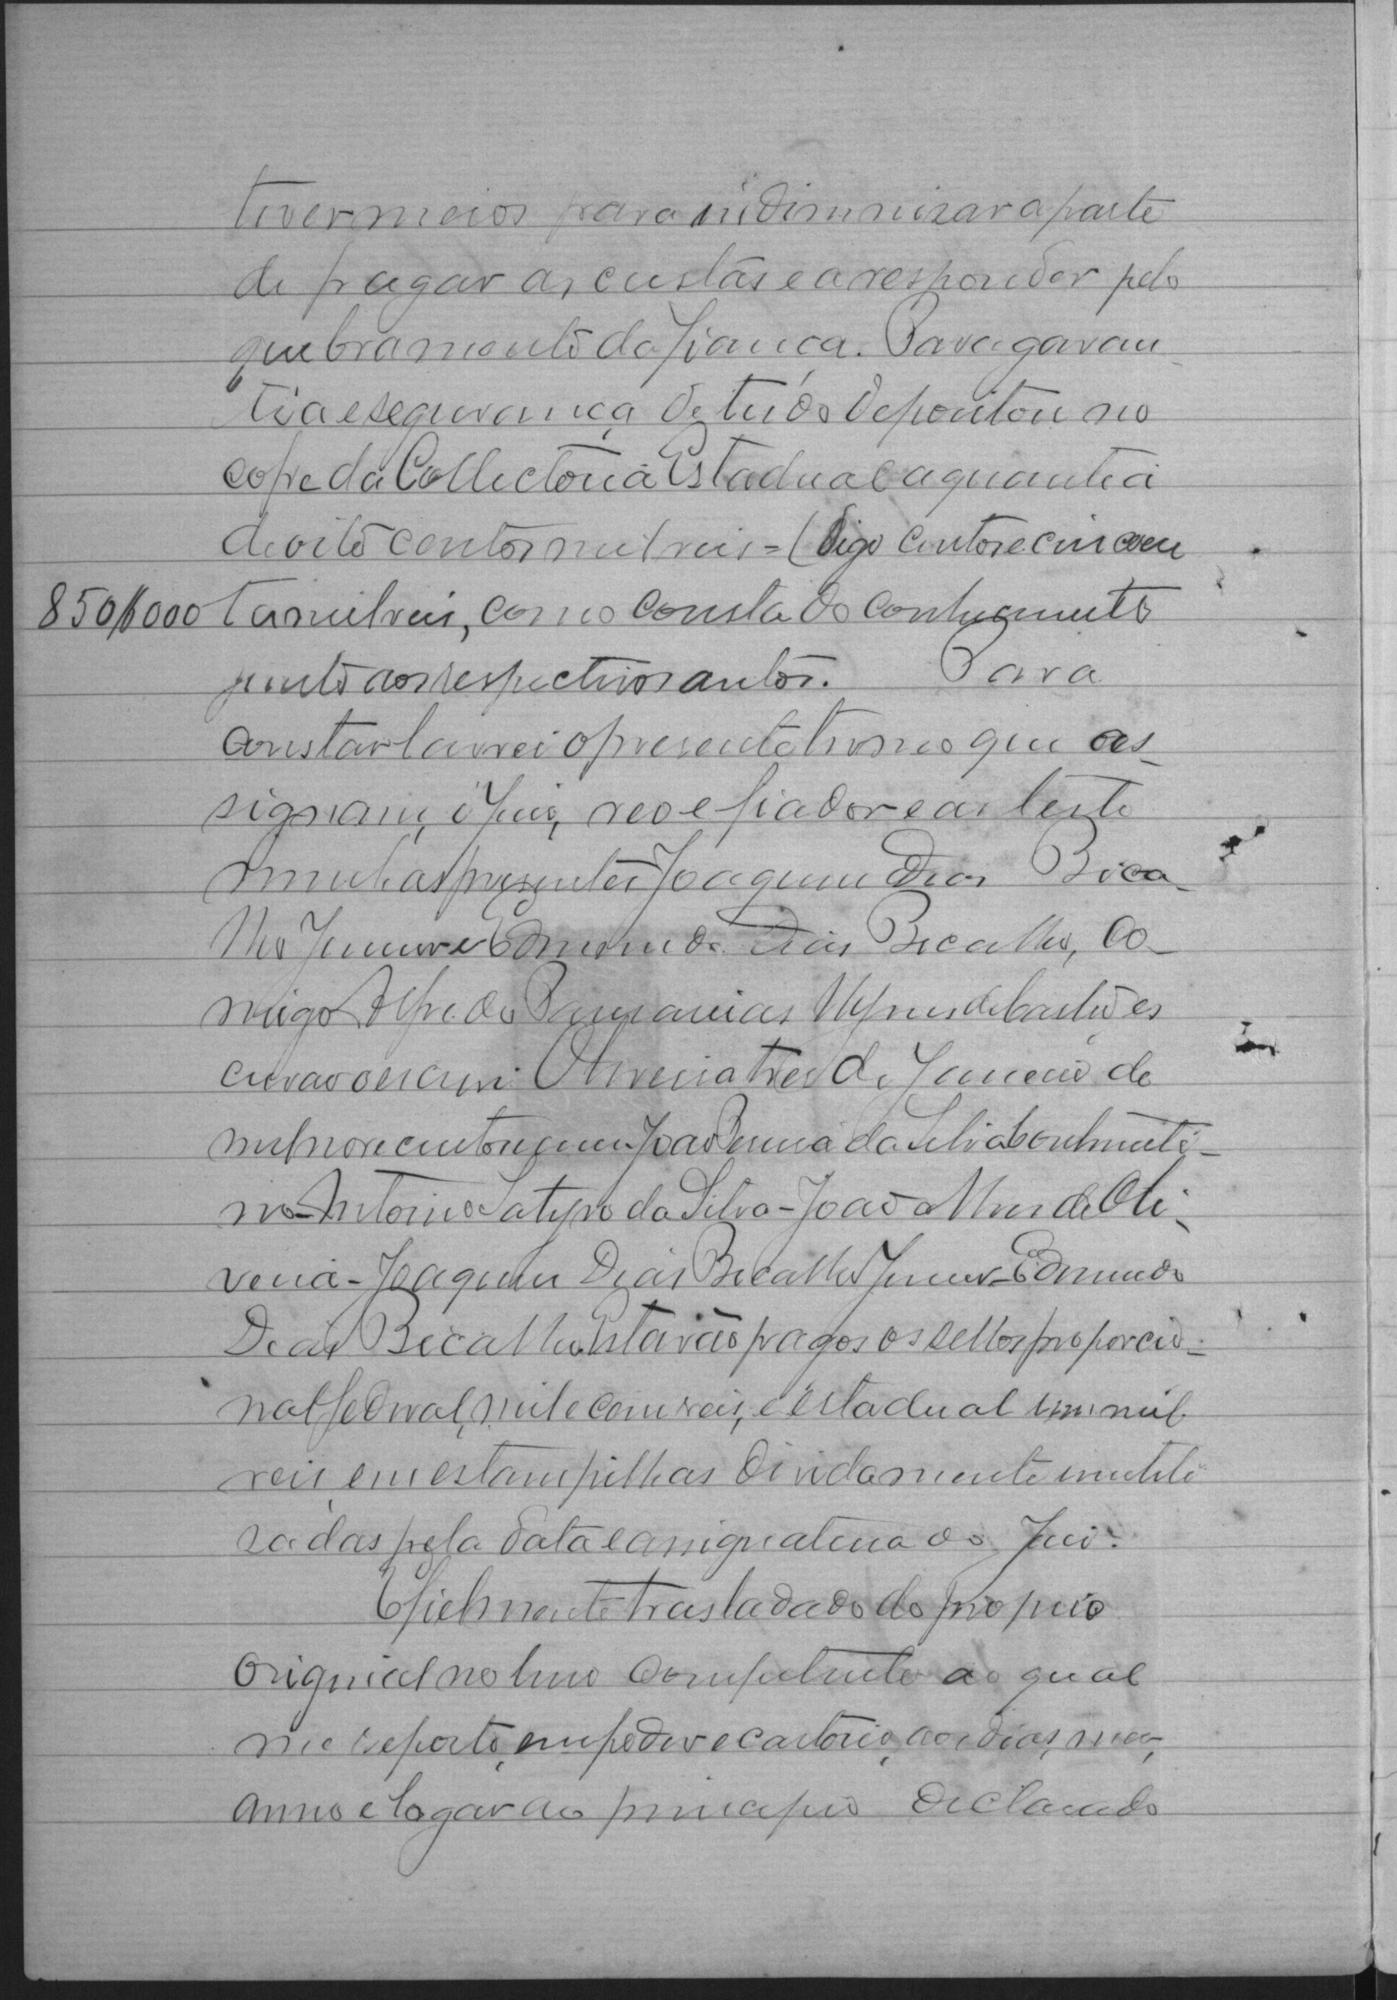 tiver meios para indimnizar a parte
de pagar as custas e a responder pelo
quebramento da fiança. Para garan
tia e segurança de tudo depositou no
cofre da Collectoria Estadual a quantia
de oito centos mil reis = (digo centos e cincoen
850$000 ta mil reis, como consta do conhecimento
junto aos respectivos autos. Para
constar lavrei o presente termo que as-
signam, o Juiz, reo e fiador e as teste
munhas presentes Joaquim Dias Bica-
lho Junior e Edmundo Dias Bicalho, co-
migo Alfredo Pausanias es
crivão o escrevi. Oliveira tres de Janeiro de
mil novecentos e um. João da Silva
no - Antonio da Silva - João Alves de Oli-
veira - Joaquim Dias Bicalho Junior - Edmundo
Dias Bicalho. Estavão pagos os sellos proporcio-
nal federal, mil e cem reis, e estadual um mil
reis, em estampilhas dividamente inutili
sadas pela data e assignatura do Juiz.
E fielmente trasladado do proprio
original no livro competente ao qual
me reporto, em poder e cartorio, aos dias, mez,
anno e logar ao principio declarado